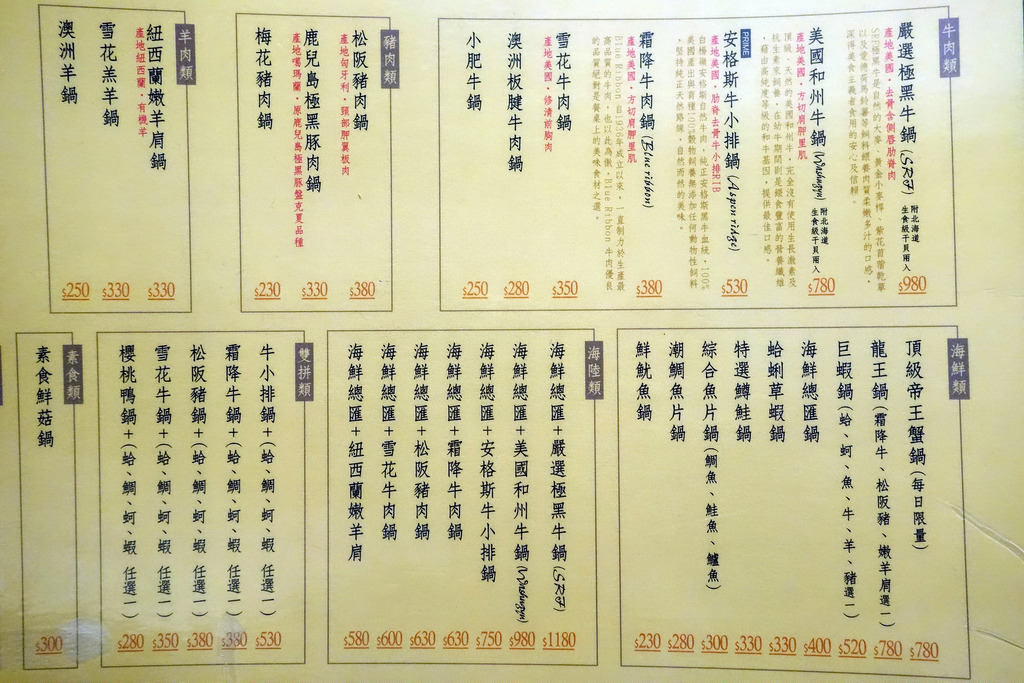 牛肉類
嚴選極黑牛鍋(SRF) 附北海道生食級干貝兩入 $980
產地美國，去骨含側唇肋脊肉
美國和州牛鍋(Washugyu) 附北海道生食級干貝兩入 $780
產地美國，方切肩胛里肌
PRIME
安格斯牛小排鍋(Aspen ridge) $530
產地美國，肋脊去骨牛小排RIB
霜降牛肉鍋(Blue ribbon) $380
產地美國，方切肩胛里肌
Blue Ribbon 自1936年成立以來，一直制力於生產最
高品質的牛肉，也以此為傲，Blue Ribbon 牛肉優良
的品質絕對是餐桌上的美味食材之選。
雪花牛肉鍋 $350
產地美國，修清前胸肉
澳洲板腱牛肉鍋 $280
小肥牛鍋 $250
豬肉類
松阪豬肉鍋 $380
產地匈牙利，頸部胛翼板肉
鹿兒島極黑豚肉鍋 $330
產地噶瑪蘭，原鹿兒島極黑豚盤克夏品種
梅花豬肉鍋 $230
羊肉類
紐西蘭嫩羊肩鍋 $330
產地紐西蘭，有機羊
雪花羔羊鍋 $330
澳洲羊鍋 $250
海鮮類
頂級帝王蟹鍋(每日限量) $780
龍王鍋(霜降牛、松阪豬、嫩羊肩選一) $780
巨蝦鍋(蛤、蚵、魚、牛、羊、豬選一) $520
海鮮總匯鍋 $400
蛤蜊草蝦鍋 $330
特選鱒鮭鍋 $330
綜合魚片鍋(鯛魚、鮭魚、鱸魚) $300
潮鯛魚片鍋 $280
鮮魷魚鍋 $230
海陸類
海鮮總匯+嚴選極黑牛鍋(SRF) $1180
海鮮總匯+美國和州牛鍋(Washugyu) $980
海鮮總匯+安格斯牛小排鍋 $750
海鮮總匯+霜降牛肉鍋 $630
海鮮總匯+松阪豬肉鍋 $630
海鮮總匯+雪花牛肉鍋 $600
海鮮總匯+紐西蘭嫩羊肩 $580
雙拼類
牛小排鍋+(蛤、鯛、蚵、蝦 任選一) $530
霜降牛鍋+(蛤、鯛、蚵、蝦 任選一) $380
松阪豬鍋+(蛤、鯛、蚵、蝦 任選一) $380
雪花牛鍋+(蛤、鯛、蚵、蝦 任選一) $350
櫻桃鴨鍋+(蛤、鯛、蚵、蝦 任選一) $280
素食類
素食鮮菇鍋 $300